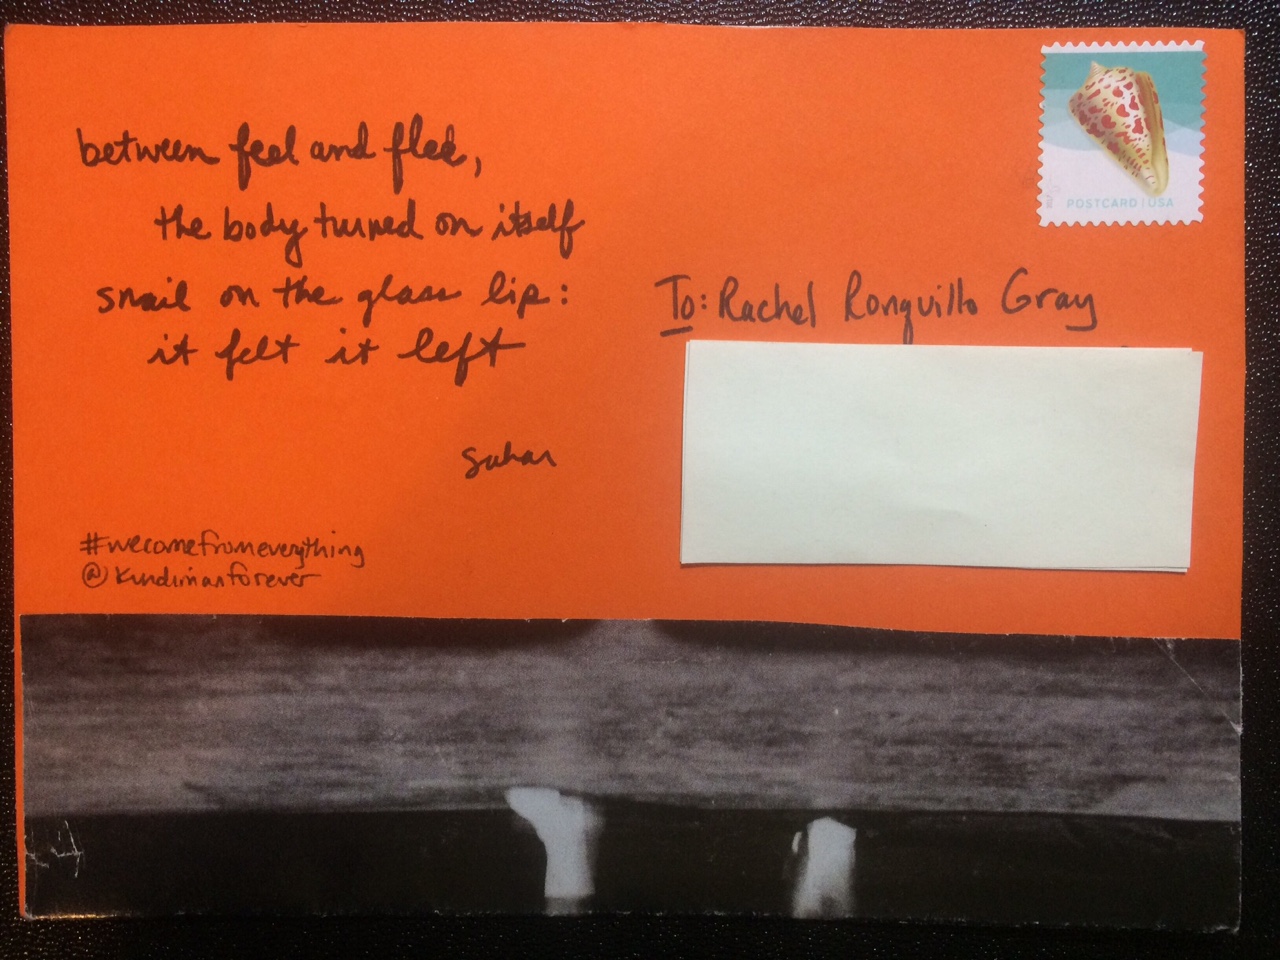 between feel and flee,
the body turned on itself
snail on the glass lip:
it felt it left
sahar
#wecomefromeverything
@kundimanforever
POSTCARD | USA
To: Rachel Ronquillo Gray